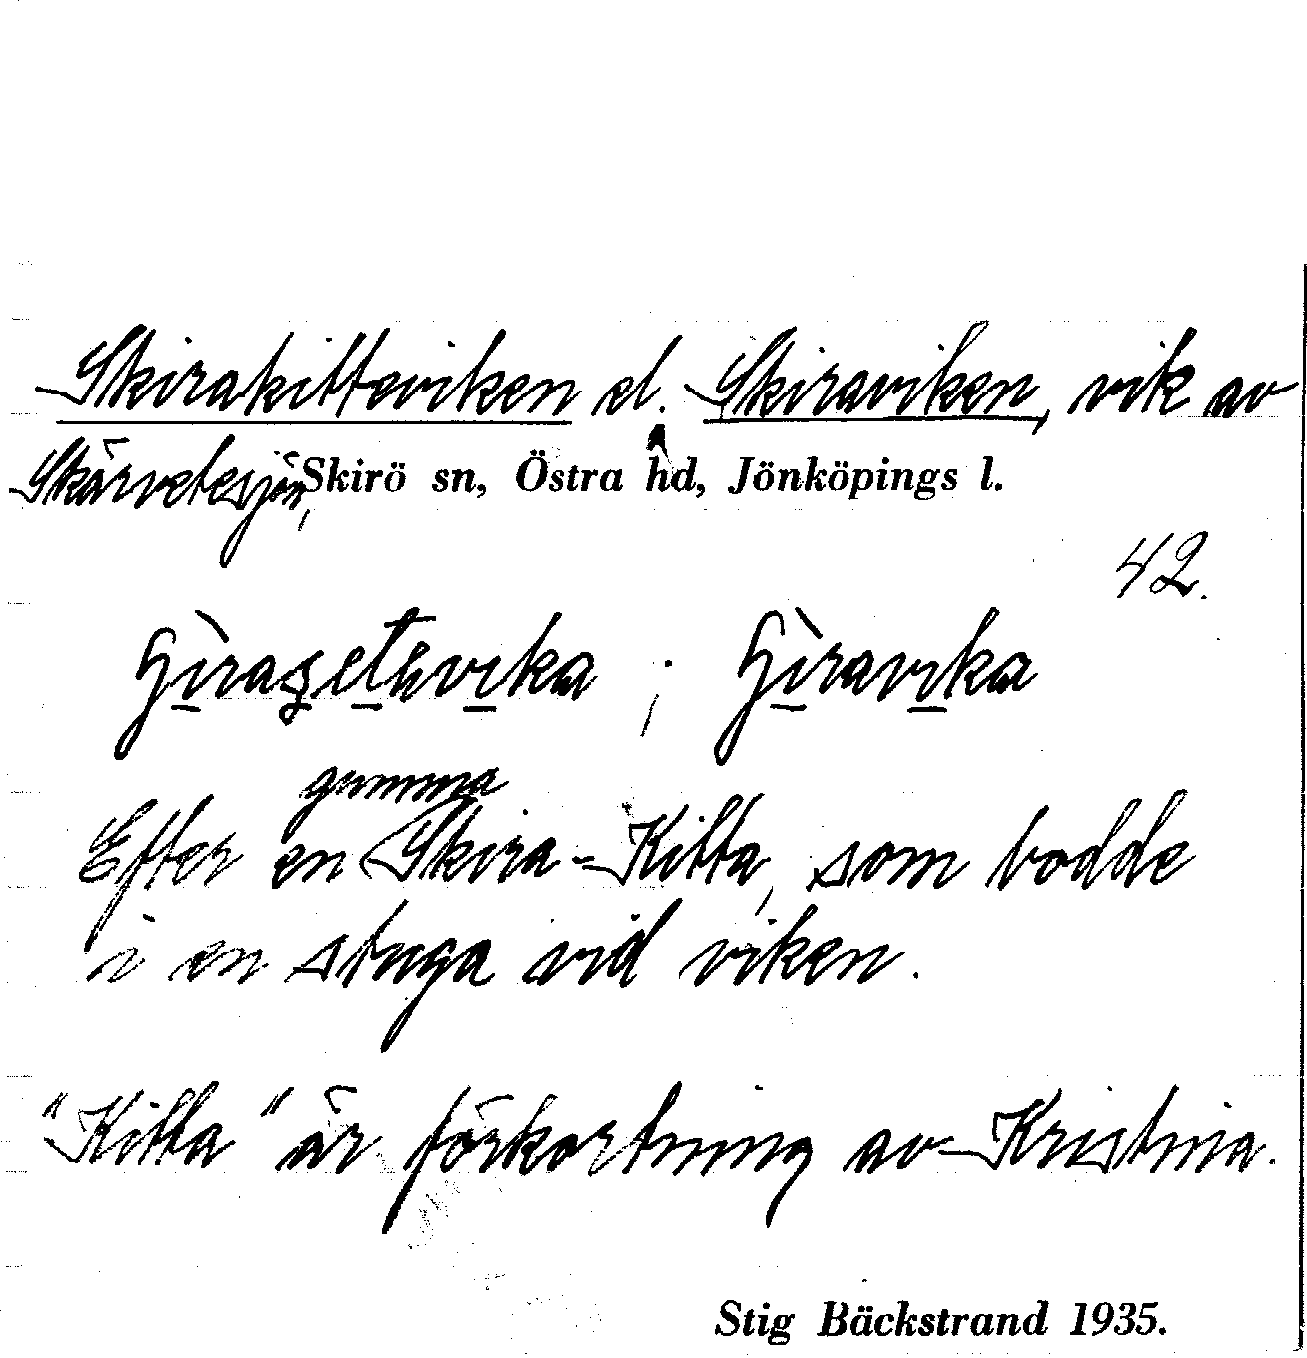 Skirakitteviken el. Skiraviken, vik av
Skärvetesjön, Skirö sn, Östra hd, Jönköpings l.
42.
Efter en gumma Skira-Kitta, som bodde
i en stuga vid viken.
"Kitta" är förkortning av Kristina.
Stig Bäckstrand 1935.